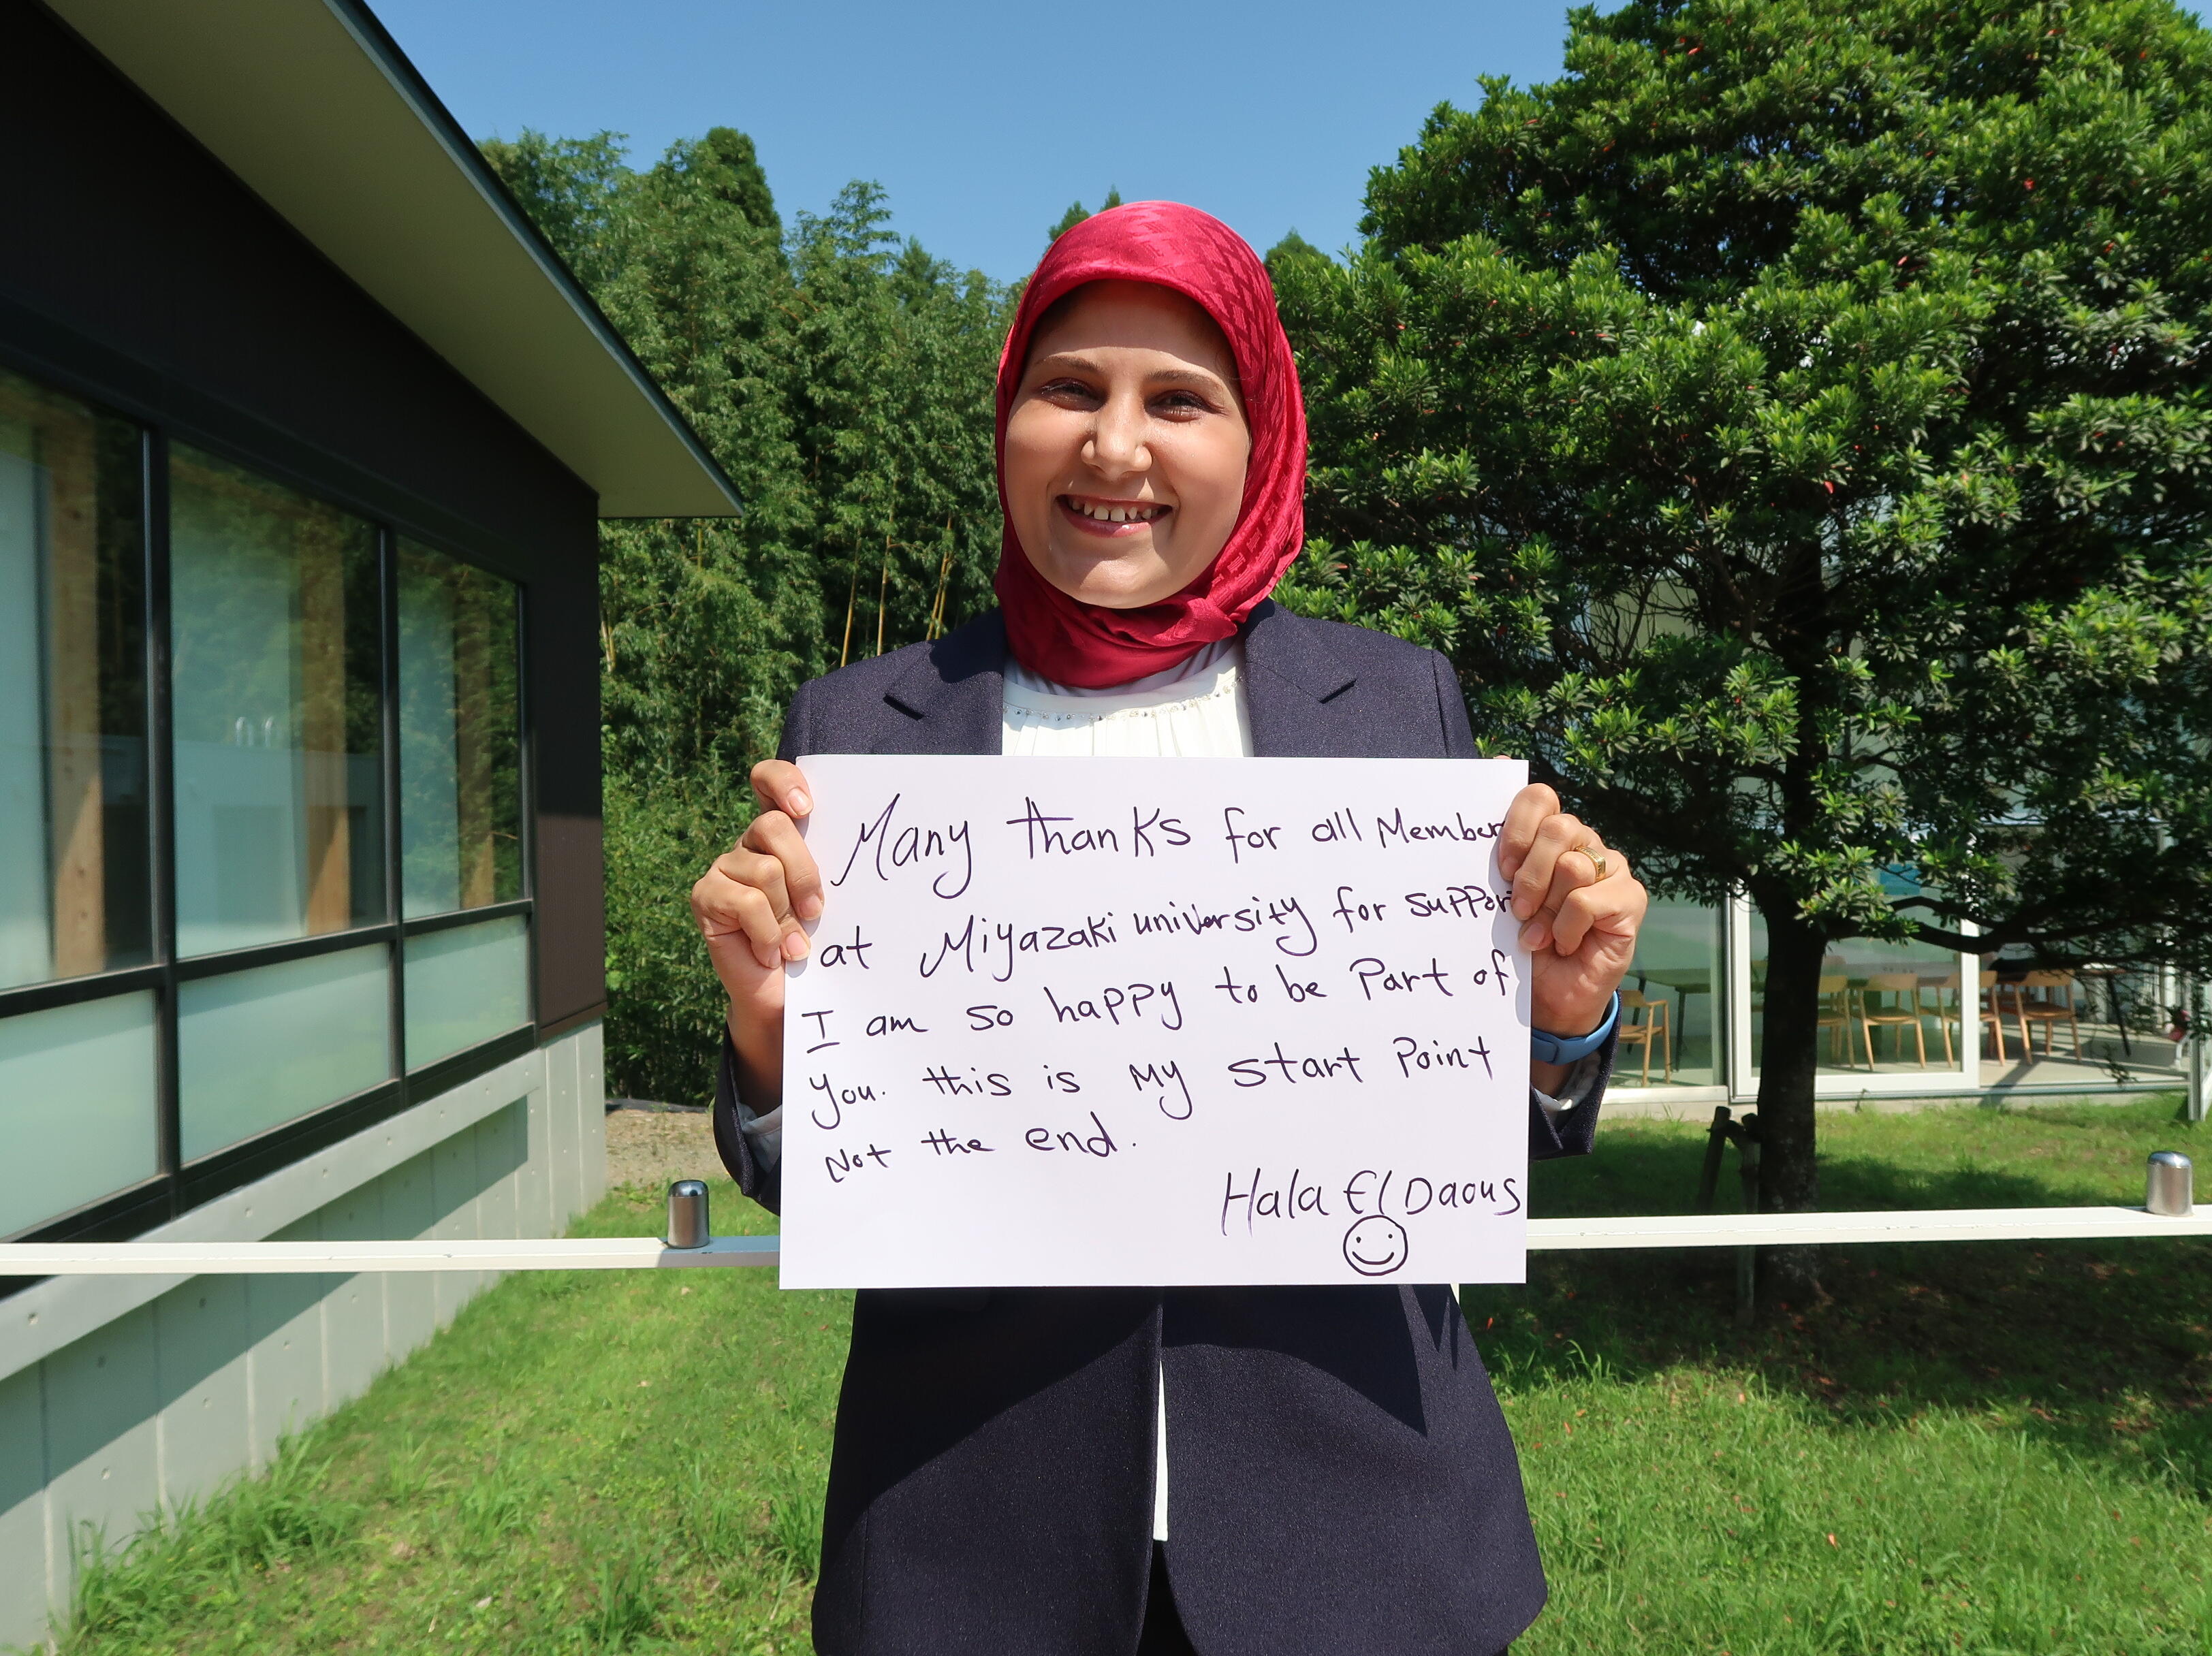 Many thanks for all Member
at Miyazaki university for support
I am so happy to be Part of
you. this is My start Point
Not the end.
Hala El Daous